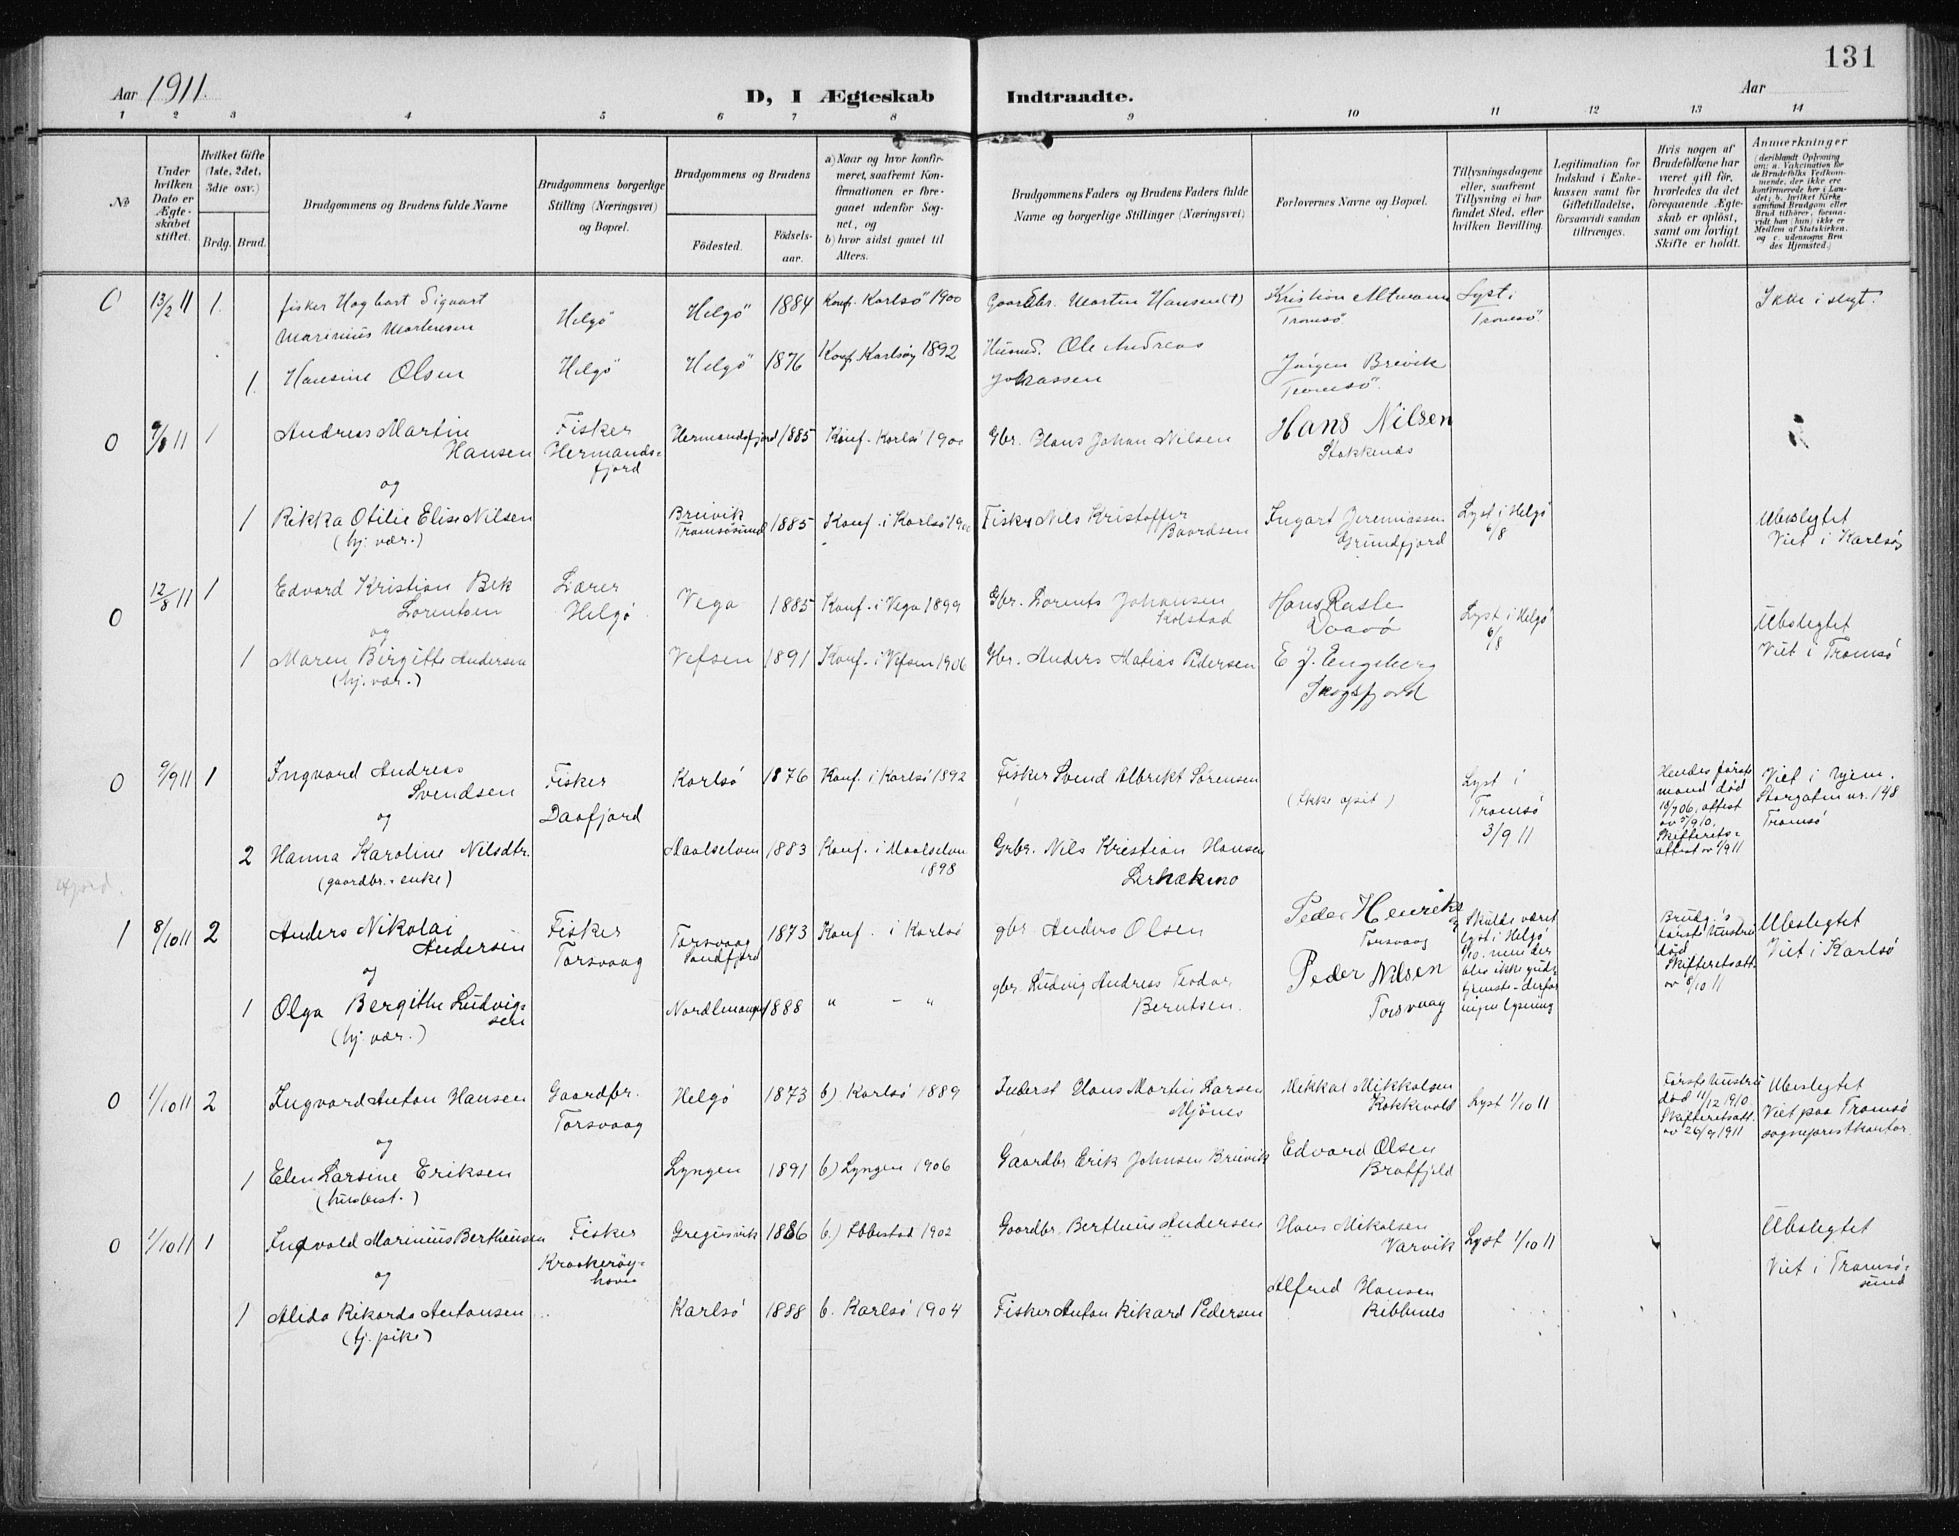 131
Aar 1911.
D, I Ægteskab Indtraadte.
Aar
1 2 3 4 5 6 7 8 9 10 11 12 13 14
No
Under hvilken Dato er Ægteskabet stiftet.
Hvilket Gifte (1ste, 2det, 3die osv.)
Brdg. Brud.
Brudgommens og Brudens fulde Navne
Brudgommens borgerlige Stilling (Næringsvei) og Bopæl.
Brudgommens og Brudens
Födested.
Födsels-aar.
a) Naar og hvor konfirmeret, saafremt Konfirmationen er foregaaet udenfor Sognet, og
b) hvor sidst gaaet til Alters.
Brudgommens Faders og Brudens Faders fulde Navne og borgerlige Stillinger (Næringsvei)
Forlovernes Navne og Bopæl.
Tillysningsdagene eller, saafremt Tillysning ei har fundet Sted, efter hvilken Bevilling.
Legitimation for Indskud i Enkekassen samt for Giftetilladelse, forsaavidt saadan tiltrænges.
Hvis nogen af Brudefolkene har været gift før, hvorledes da det foregaaende Ægteskab er oplöst, samt om lovligt Skifte er holdt.
Anmerkninger
(deriblandt Oplysning om: a. Vaksination for de Brudefolks Vedkommende, der ikke ere konfirmerede her i Landet; b. hvilket Kirkesamfund Brudgom eller Brud tilhörer, forsaavidt han (hun) ikke er Medlem af Statskirken. og c. udensogns Brudes Hjemsted.)
0 13/2 11 1. fisker Hagbart Sigvart Helgö Helgö 1884 Konf. Karlsö 1900 Gaardbr. Morten Hansen (†) Kristian Altmann Lyst i Ikke i slegt.
Marinius Mortensen Tromsö Tromsö.
1. Hansine Olsen Helgö Helgö 1876 Konf. Karlsöy 1892 Husmd. Ole Andreas Jörgen Breivik
Johassen Tromsö
0 9/8 11 1 Andreas Martin Fisker Hermandsfjord 1885 Konf. Karlsö 1900 Gbr. Hans Johan Nilsen Hans Nilsen
Hansen Hermandsfjord Stakkenes
og
1 Rikka Otilie Elise Nilsen Breivik Tromsösund 1885 Konf. i Karlsö 1900 Fisker Nils Kristoffer Ingart Jeremiassen Lyst i Helgö Ubeslegtet
(hj. vær.) Baardsen Grundfjord 6/8 Viet i Karlsö
0 12/8 11 1 Edvard Kristian Bek Lærer Vega 1885 Konf. i Vega 1899 Gbr. Lorents Johansen Hans Raste Lyst i Helgö Ubeslegtet
Lorentsen Helgö Kolstad Vaavö 6/8 Viet i Tromsö
og
1 Maren Birgitte Andersen Vefsen 1891 Konf. i Vefsen 1906 Gbr. Anders Matias Pedersen E J. Engeberg
(hj. vær.) Skogsfjord
0 9/9 11 1 Ingvard Andreas Fisker Karlsö 1876 Konf. i Karlsö 1892 Fisker Svend Albrikt Sörensen (Ikke opsit) Lyst i Hendes förste Viet i hjem.
Svendsen Daafjord Tromsö mand död Storgaten nr. 148
og 3/9 11 Tromsö
2 Hanna Karoline Nilsdtr. Maalselven 1883 Konf. i Maalselven Grbr. Nils Kristian Hansen Skifterets-
(gaardbr. enke) 1898
1 8/10 11 2 Anders Nikolai Fisker Torsvaag 1873 Konf. i Karlsö gbr. Anders Olsen Peder Henriks Skulde været Brudg.'s Ubeslegtet
Andersen Torsvaag Sandfjord Torsvaag lyst i Helgö förste hustru Viet i Karlsö
og død
1 Olga Bergithe Ludvigsen 1888 " - " gbr. Ludvig Andreas Teodor Peder Nilsen blev ikke guds- Skifteretsatt.
(hj. vær.) Berntsen. Torsvaag tjeneste - derfor av 6/10 11
ingen lysning
0 1/10 11 2 Ingvard Anton Hansen Gaardbr. Helgö 1873 b) Karlsö 1889 Inderst Hans Martin Larsen Mikkal Mikkalsen Lyst 1/10 11 Förste hustru Ubeslegtet
Torsvaag Mjönes Kokkevold död 11/12 1910 Viet paa Tromsö
og Skifteretsatt. sogneprestkontor
1 Elen Larsine Eriksen Lyngen 1891 b) Lyngen 1906 Gaardbr Erik Johnsen Breivik Edvard Olsen av 26/9 1911
(husbest.) Bratfjeld
0 1/10 11 1 Ingvald Marinius Bertheusen Fisker Gregusvik 1886 b.) Ibbestad 1902 Gaardbr. Bertheus Andersen Hans Mikalsen Lyst 1/10 11 Ubeslegtet
Kraakeröy- Varvik Viet i Tromsö-
og havn sund
1 Alida Rikarda Antonsen Karlsö 1888 b. Karlsö 1904 Fisker Anton Rikard Pedersen Alfred Hansen
(tj. pike) Ribbnes